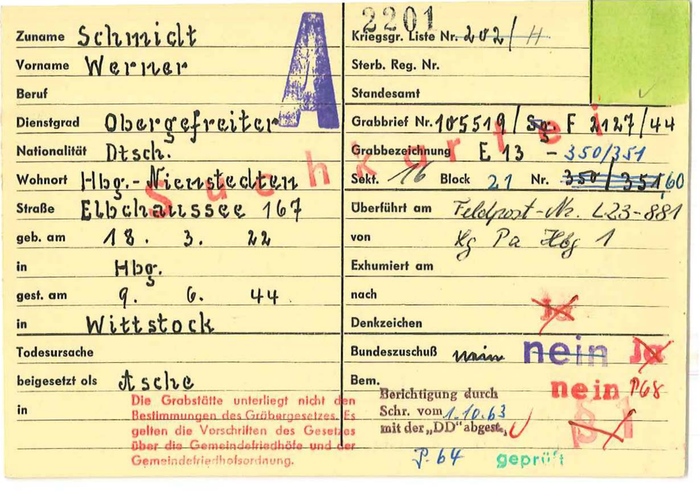 2201
A
Zuname Schmidt
Vorname Werner
Beruf
Dienstgrad Obergefreiter
Nationalität Dtsch.
Wohnort Hbg.-Nienstedten
Straße Elbchaussee 167
geb. am 18. 3. 22
in Hbg.
gest. am 9. 6. 44
in Wittstock
Todesursache
beigesetzt als Asche
in
Die Grabstätte unterliegt nicht den
Bestimmungen des Gräbergesetzes. Es
gelten die Vorschriften des Gesetzes
über die Gemeindefriedhöfe und der
Gemeindefriedhofsordnung.
Suchkartei
Kriegsgr. Liste Nr. 202/H
Sterb. Reg. Nr.
Standesamt
Grabbrief Nr. 105519/Sg. F 2127/44
Grabbezeichnung E 13 - 350/351
Sekt. 16 Block 21 Nr. 350/351,60
Überführt am Feldpost-Nr. L23-881
von Lg Pa Hbg 1
Exhumiert am
nach
Ja
Denkzeichen
Bundeszuschuß nein nein Ja
Bem. nein P68
Berichtigung durch
Schr. vom 1.10.63
mit der „DD" abgest.
§ 1
P. 64 geprüft